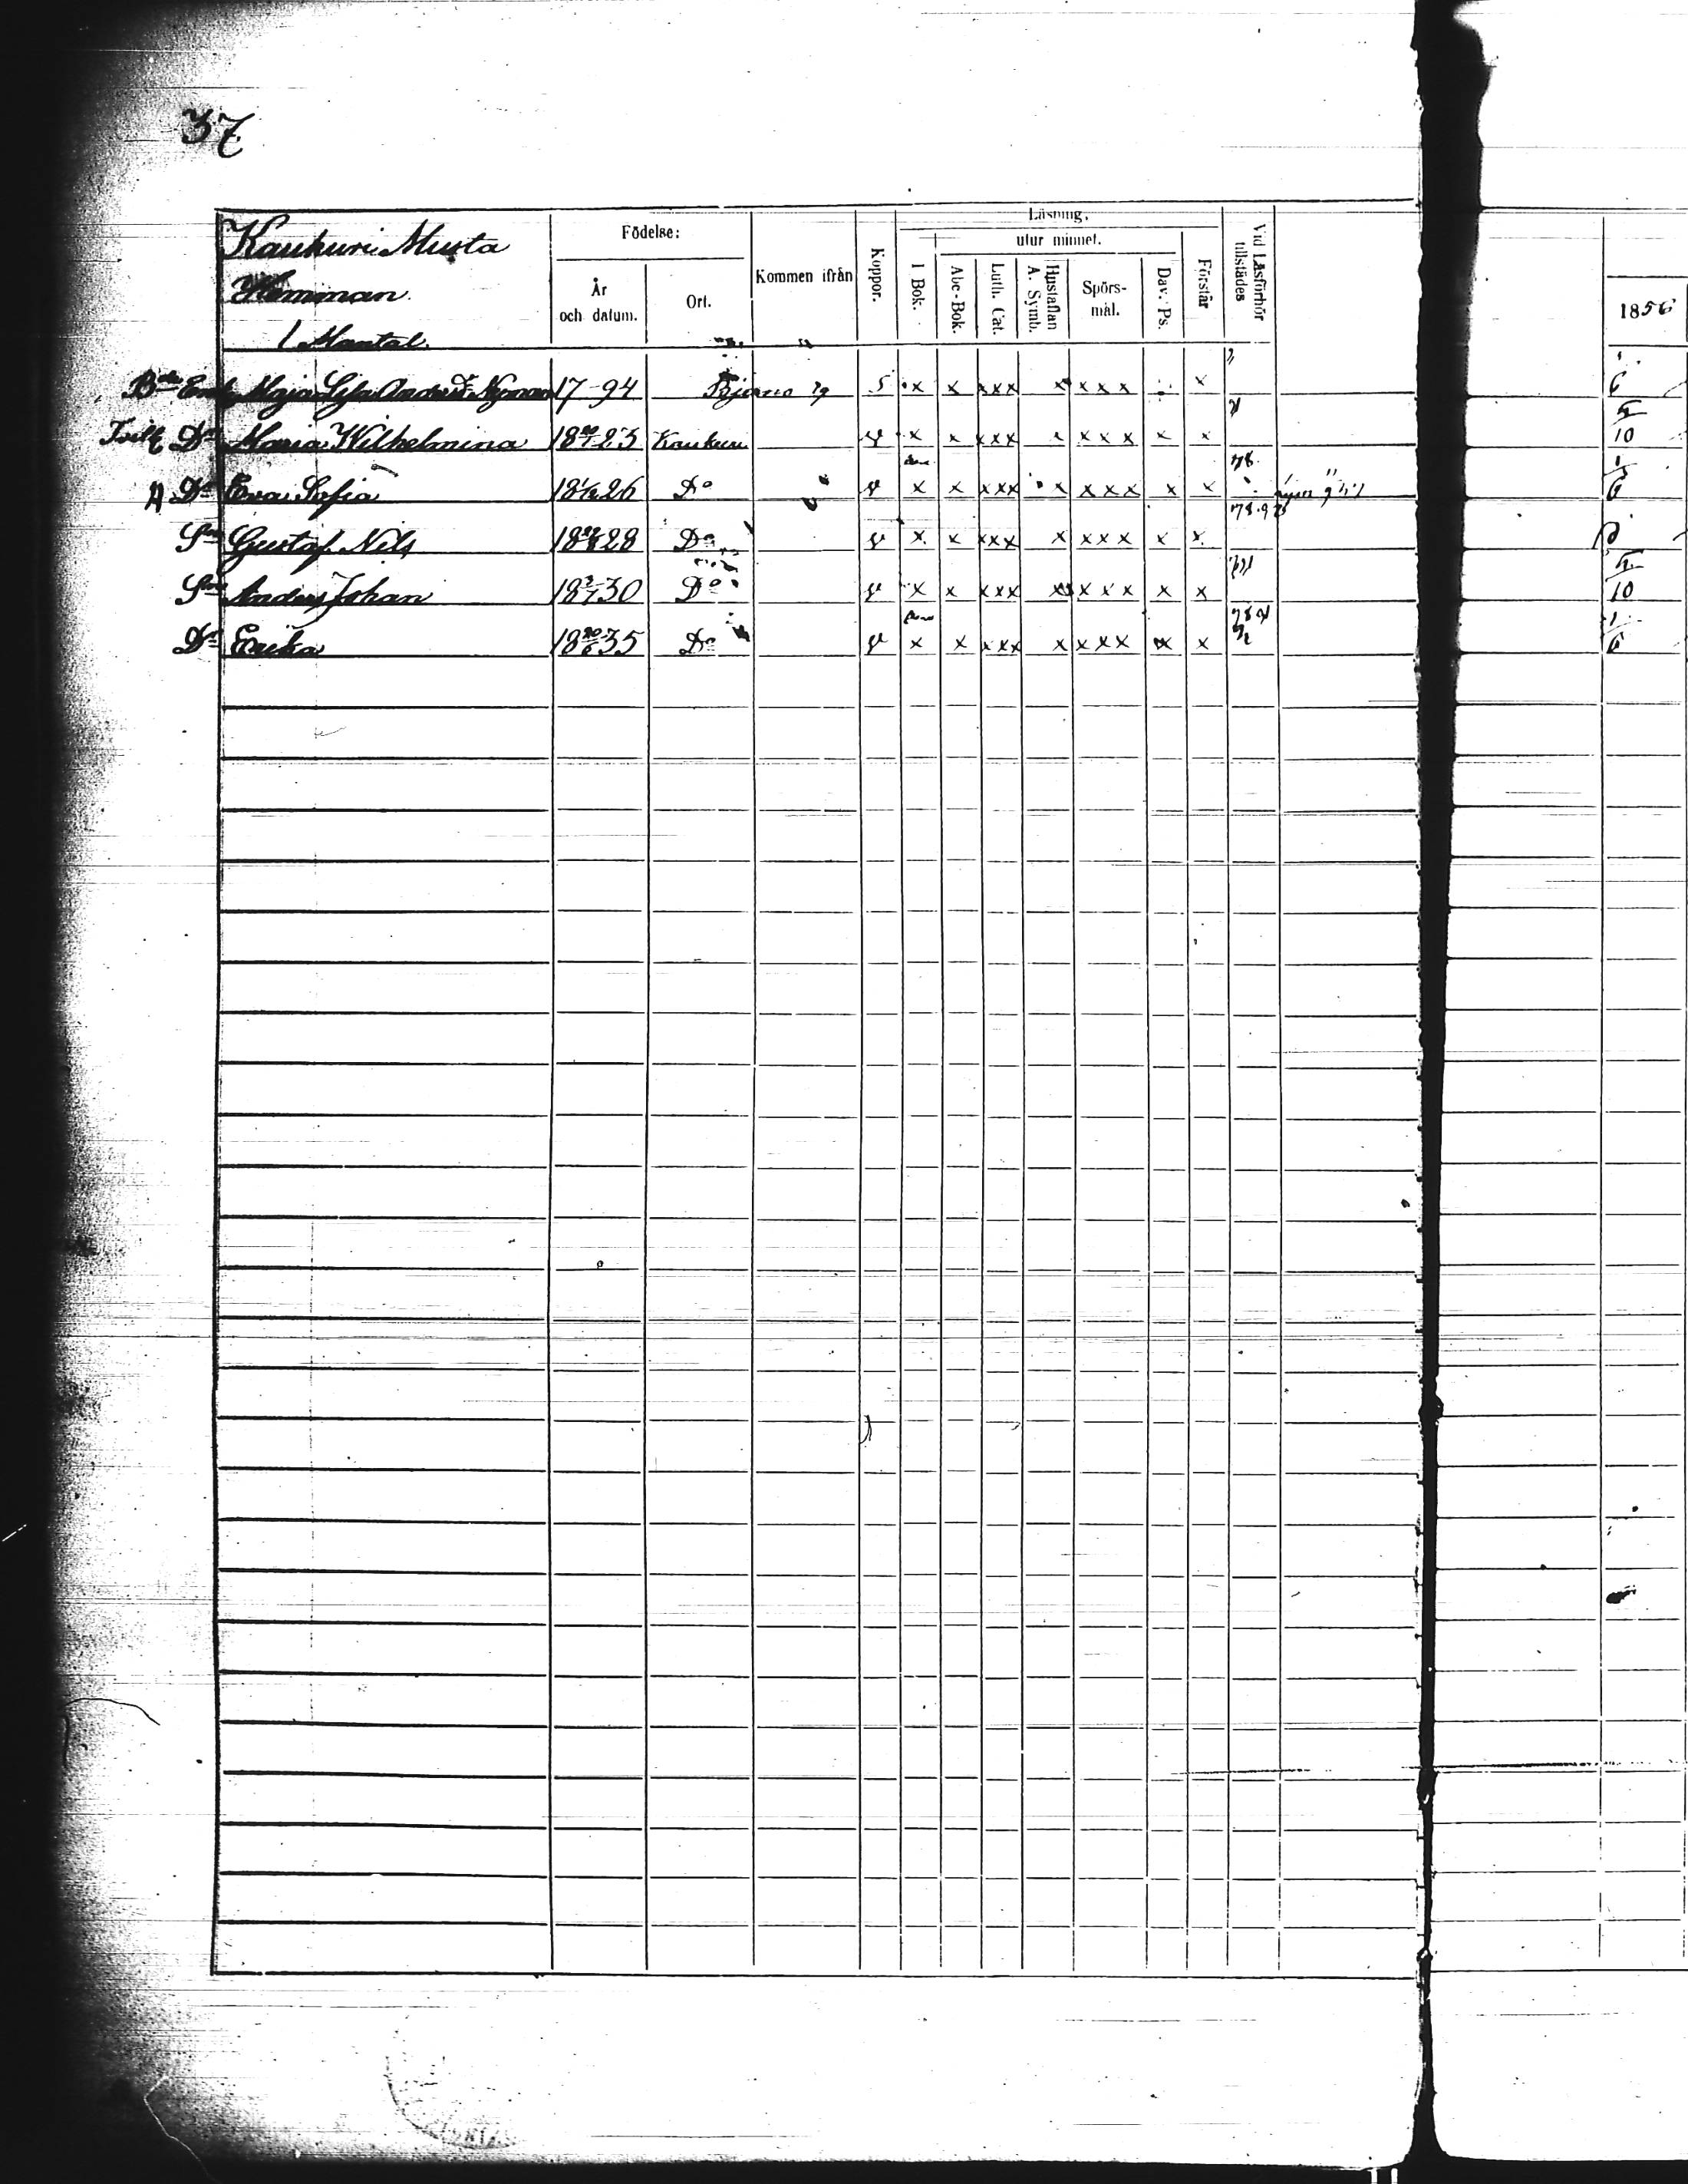 37
Kaukuri Musta
Hemman.
1 Mantal.
Födelse:
År och datum.
Ort.
Kommen ifrån
Koppor.
Läsning.
utur minnet.
I Bok.
Abc-Bok.
Luth. Cat.
Hustaflan A. Symb.
Spörsmål.
Dav. Ps.
Förstår
Vid Läsförhör tillstädes
1856
Maja Lisa Andersd. Nyman 17-94 Bjerno s x x xxx x xxx x 6
Dr Maria Wilhelmina 18 23 Kaukuri v x x xxx x xxx x x 10
Dr Eva Sofia 18 26 Do v x x xxx x xxx x x 78 6
Son Gustaf Nils 18 28 Do v x x xxx x xxx x x 78.9
Son Anders Johan 18 30 Do v x x xxx x xxx x x 10
Dr Erika 18 35 Do v x x xxx x xxx x x 6